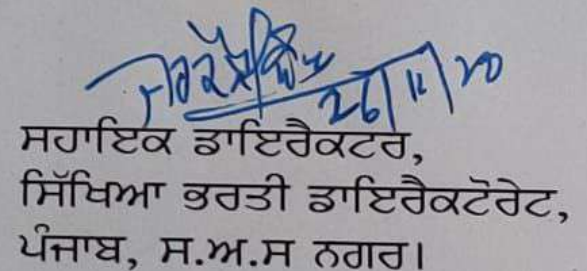 26/11/20
ਸਹਾਇਕ ਡਾਇਰੈਕਟਰ,
ਸਿੱਖਿਆ ਭਰਤੀ ਡਾਇਰੈਕਟੋਰੇਟ,
ਪੰਜਾਬ, ਸ.ਅ.ਸ ਨਗਰ।